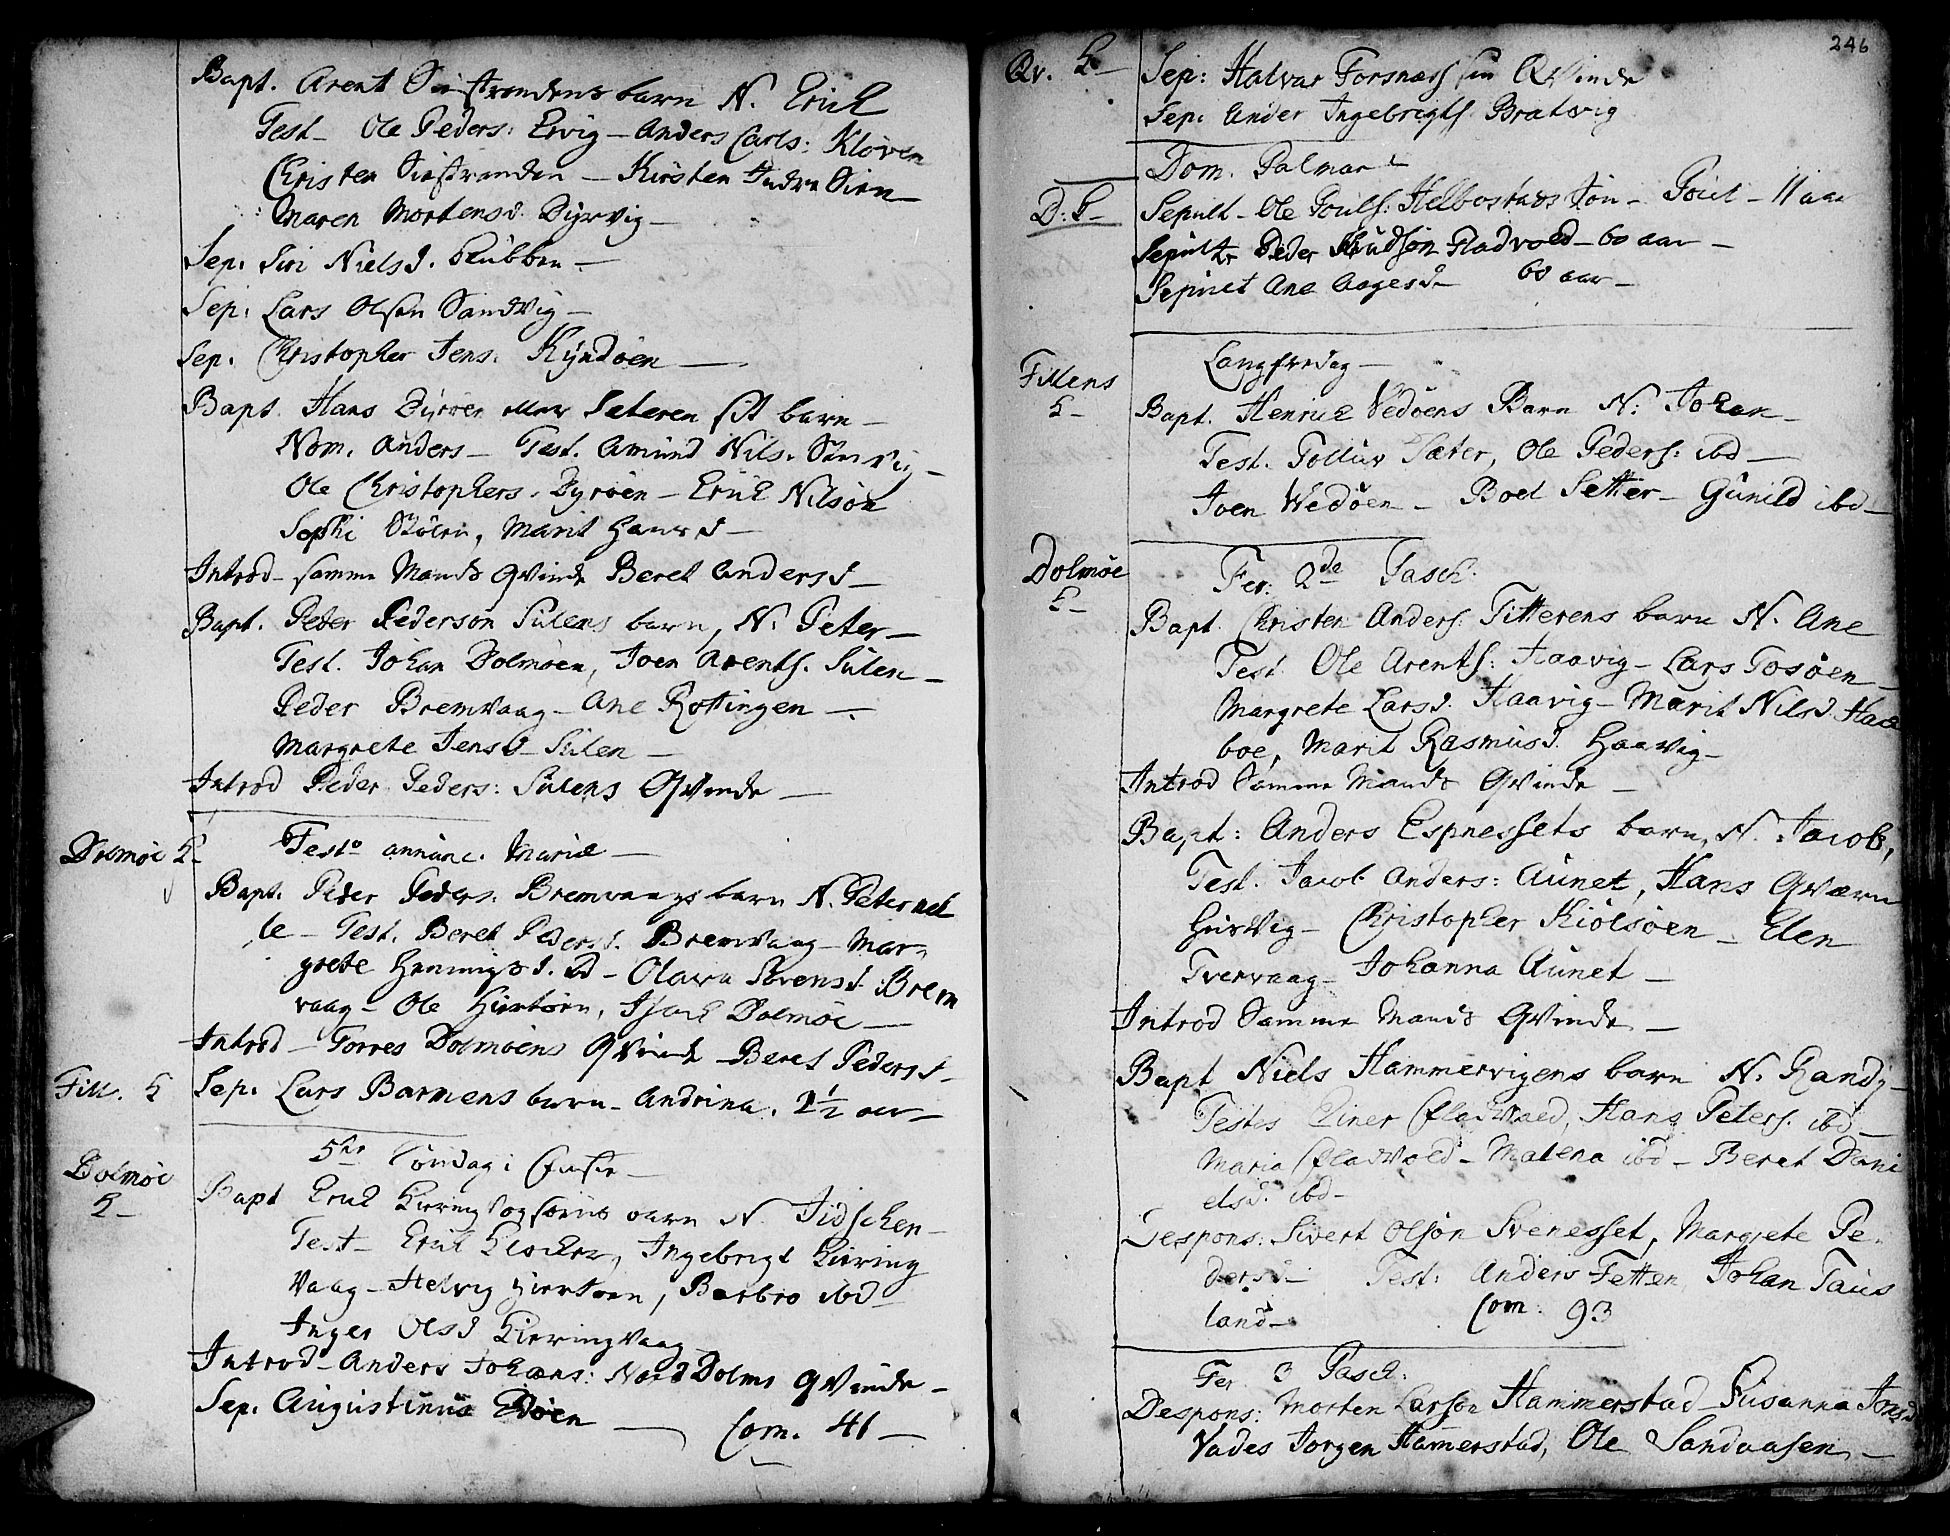 Bapt. Arent Sistrandens barn N. Erich
Test- Ole Peders: Ervig - Anders Carls: Kloven
Christen Sistranden - Kirsten Indre Sien
Maren Mortensd. Dyrvig -
Sep. Siri Nielsd. Stubben -
Sep. Lars Olsen Sandvig -
Sep. Christopher Jens. Kyndöen -
Bapt. Hans Dyröen eller Sæteren sit barn -
Nom. Anders - Test. Amund Nils.
Ole Christophers. Dyröen - Erich Nilsön
Sephi Stölen, Marit Hansd -
Introd - samme Mands Qvinde Beret Andersd -
Bapt. Peter Pederson Sulens barn, N. Peter -
Test. Johan Dolmöen, Joen Arents. Sulen -
Peder Bremvaag - Ane Rottingen -
Margrete Jensd - Sulen -
Introd Peder Peders: Sulens Qvinde -
Dolmöe K-
Festo annunc. Mariæ -
Bapt. Peder Peders. Bremvaags barn N. Peternel
le - Test. Beret Pedersd. Bremvaag - Mar-
grete Henningsd. ibd - Olava Sörensd. Brem
vaag - Ole Hiertöen, Isach Dolmöe -
Introd - Torres Dolmöens Qvinde - Beret Pedersd -
Fill. K
Sep. Lars Barmens barn - Andrina. 2 1/2 aar -
5te Söndag i Faste -
Dolmöe
K-
Bapt Erich Kierringvogsöens barn N. Fidschen -
Test - Erich Klocker, Ingebrigt Kiering
vaag - Helvig Hiertöen, Barbro ibd -
Inger Olsd Kierringvaag
Introd - Anders Johans: Nord Dolms Qvinde -
Sep. Augustinus Edöen -
Com. 41 -
246
Qv. K-
Sep: Halvar Forsnæs sin Qvinde
Sep. Ander Ingebrigts. Bratvig
Dom. Palmar
D: K-
Sepult - Ole Pouls: Helbostads Sön - Poul - 11 aar
Sepult Peder Knudsön Fladvold - 60 aar -
Sepult Ane Aagesd - 60 aar -
Langfredag -
Fillens
K-
Bapt. Henrich Vedöens Barn N: Johan -
Test. Tolluv Sæter, Ole Peders: ibd -
Joen Wedöen - Boel Setter - Gunild ibd -
Dolmöe
K-
Fer: 2de Pasch:
Bapt. Christen Anders. Titterens barn N. Ane
Test. Ole Arents: Haavig - Lars Tosöen -
Margrete Larsd. Haavig - Marit Nilsd.
boe, Marit Rasmusd. Haavig -
Introd Samme Mands Qvinde -
Bapt: Anders Espnessets barn, N. Jacob,
Test. Jacob Anders: Aunet, Hans Qværn
husvig - Christopher Kiölsöen - Elen
Tvervaag - Johanna Aunet -
Introd Samme Mands Qvinde -
Bapt Niels Hammervigens barn N. Randi -
Testes Einer Fladvold, Hans Peters. ibd -
Maria Fladvold - Malena ibd - Beret Dani
elsd. ibd -
Despons. Sivert Olsön Svenesset, Margrete Pe-
dersd - Test: Anders Fetten, Johan Taus
land -
Com: 93
Fer. 3 Pasch.
Despons: Morten Larsen Hammerstad - Susanna Jonsd
Vades Jorgen Hamerstad, Ole Sandaasen -